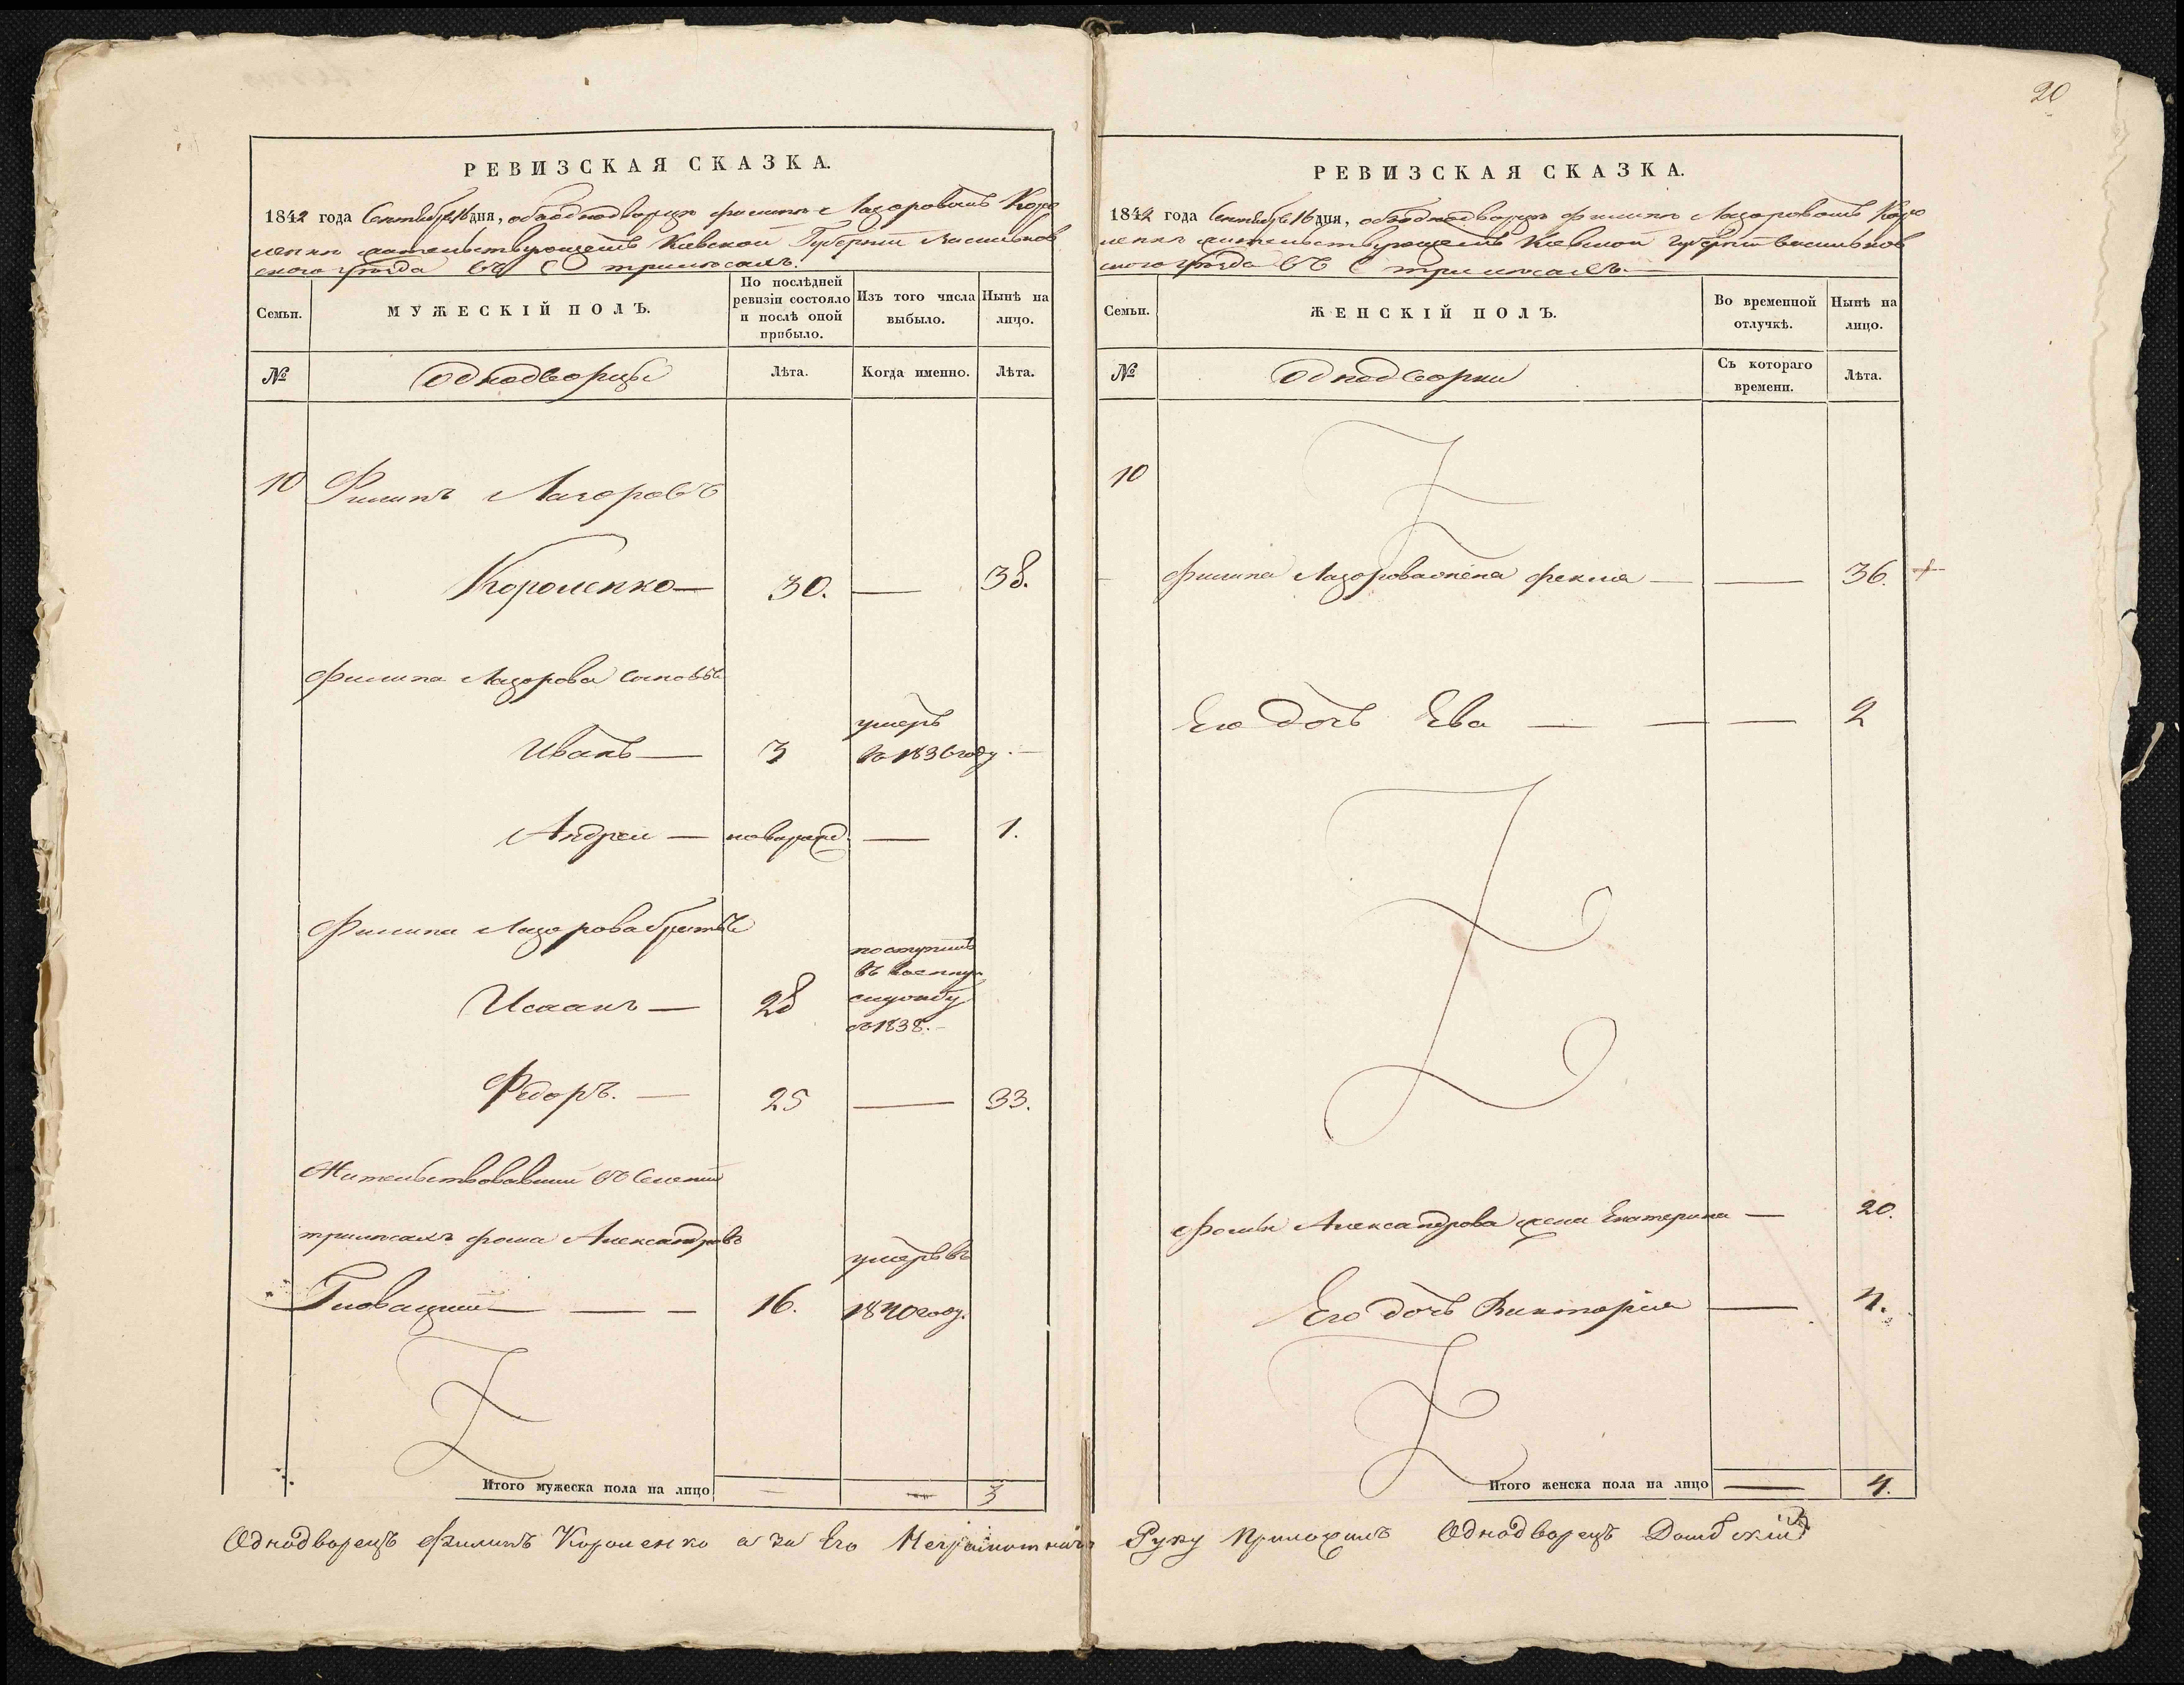 20
РЕВИЗСКАЯ СКАЗКА.
1842 года Сентября 16 дня, объ однодворцѣ Филипѣ Лазоровомъ Коро
ленкѣ жительствующемъ Киевской Губернии Васильков
ского уѣзда въ С трилѣсахъ.
Семьи.
МУЖЕСКІЙ ПОЛЪ.
По послѣдней
ревизіи состояло
и послѣ оной
прибыло.
Изъ того числа
выбыло.
Нынѣ на
лицо.
№
Однодворцы
Лѣта.
Когда именно.
Лѣта.
10 Филипъ Лазоровъ
Короленко — 30. — 38.
Филипа Лазорова сыновья
умеръ
Иванъ — 3 въ 1836 году. —
Андреи — новорожд. — 1.
Филипа Лазорова братья
поступилъ
въ военную
Исаакъ — 28 службу
въ 1838. —
Федоръ. — 25 — 33.
Жительствовавший въ Селении
трилѣсахъ Фома Александровъ
умеръ въ
Гловацкий — — — 16. 1840 году.
Итого мужеска пола на лицо — — 3
РЕВИЗСКАЯ СКАЗКА.
1842 года Сентября 16 дня, объ однодворцѣ Филипѣ Лазоровомъ Коро
ленкѣ жительствующемъ Киевской Губернии Васильков
ского уѣзда въ С трилѣсахъ. —
Семьи.
ЖЕНСКІЙ ПОЛЪ.
Во временной
отлучкѣ.
Нынѣ на
лицо.
№
Однодворки
Съ котораго
времени.
Лѣта.
10
Филипа Лазорова жена Фекла — — 36.
Его дочь Ева — — — 2
Фомы Александрова жена Екатерина — 20.
Его дочь Виктория — 4.
Итого женска пола на лицо — 4.
Однодворецъ Филипъ Короленко а за Его Неграмотнаго Руку Приложилъ Однодворецъ Домбскій